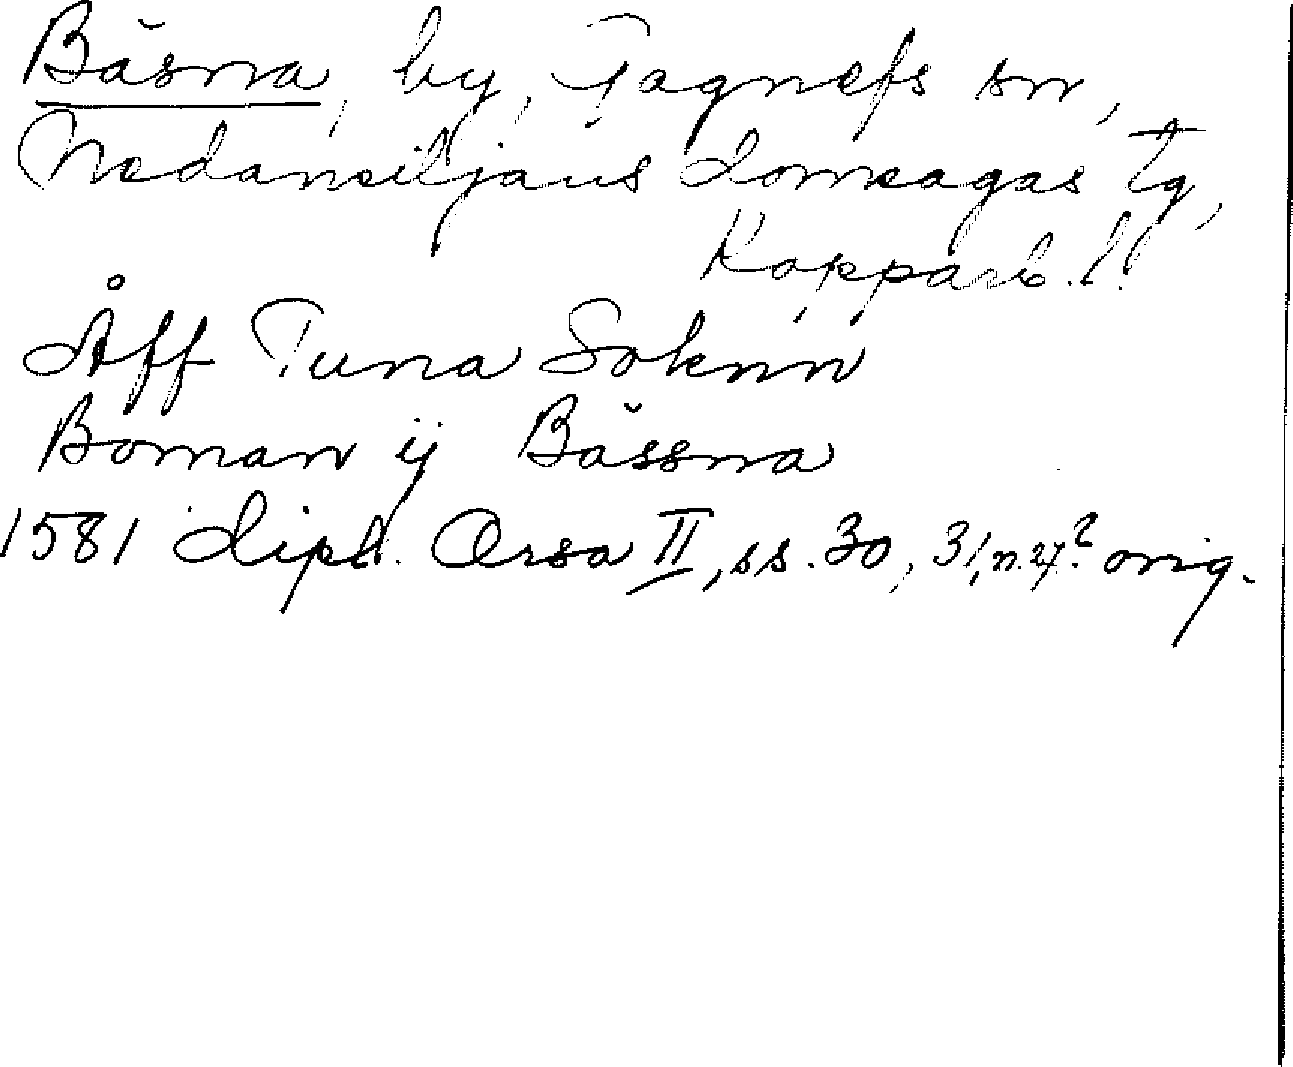 Båsna, by, Gagnefs sn,
Nedansiljans domsagas tg,
Kopparb. l.
Åff Tuna Soknn
Boman ij Båssna
1581 dipl. Orsa II, ss. 30, 31, n. 27? orig.